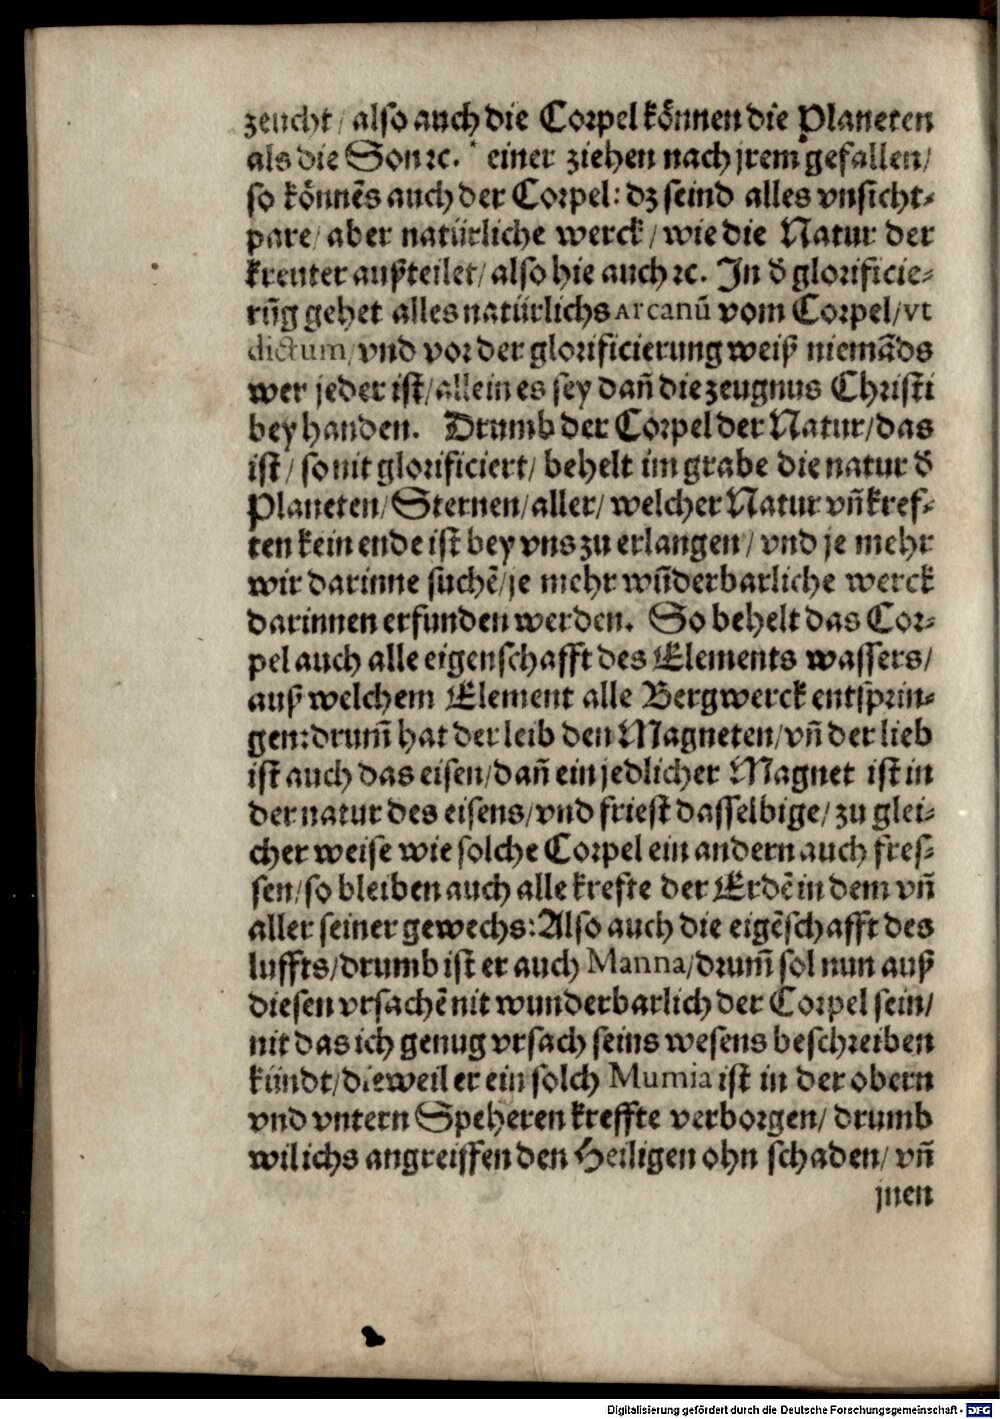 zeucht/ also auch die Corpel können die Planeten
als die Son ꝛc. einer ziehen nach jrem gefallen/
so könnẽs auch der Corpel: dz seind alles vnsicht⸗
pare/ aber natürliche werck/ wie die Natur der
kreuter außteilet/ also hie auch ꝛc. In ď glorificie⸗
rũg gehet alles natürlichs Arcanũ vom Corpel/ vt
dictum/ vnd vor der glorificierung weiß niemãds
wer jeder ist/ allein es sey dañ die zeugnus Christi
bey handen. Drumb der Corpel der Natur/ das
ist/ so nit glorificiert/ behelt im grabe die natur ď
Planeten/ Sternen/ aller/ welcher Natur vñ kref⸗
ten kein ende ist bey vns zu erlangen/ vnd je mehr
wir darinne suchẽ/ je mehr wũderbarliche werck
darinnen erfunden werden. So behelt das Cor⸗
pel auch alle eigenschafft des Elements wassers/
auß welchem Element alle Bergwerck entsprin⸗
gen: drum̃ hat der leib den Magneten/ vñ der lieb
ist auch das eisen/ dañ ein jedlicher Magnet ist in
der natur des eisens/ vnd friest dasselbige/ zu glei⸗
cher weise wie solche Corpel ein andern auch fres⸗
sen/ so bleiben auch alle krefte der Erdẽ in dem vñ
aller seiner gewechs: Also auch die eigẽschafft des
luffts/ drumb ist er auch Manna/ drum̃ sol nun auß
diesen vrsachẽ nit wunderbarlich der Corpel sein/
nit das ich genug vrsach seins wesens beschreiben
kündt/ dieweil er ein solch Mumia ist in der obern
vnd vntern Speheren kreffte verborgen/ drumb
wil ichs angreiffen den Heiligen ohn schaden/ vñ
jnen
Digitalisierung gefördert durch die Deutsche Forschungsgemeinschaft - DFG